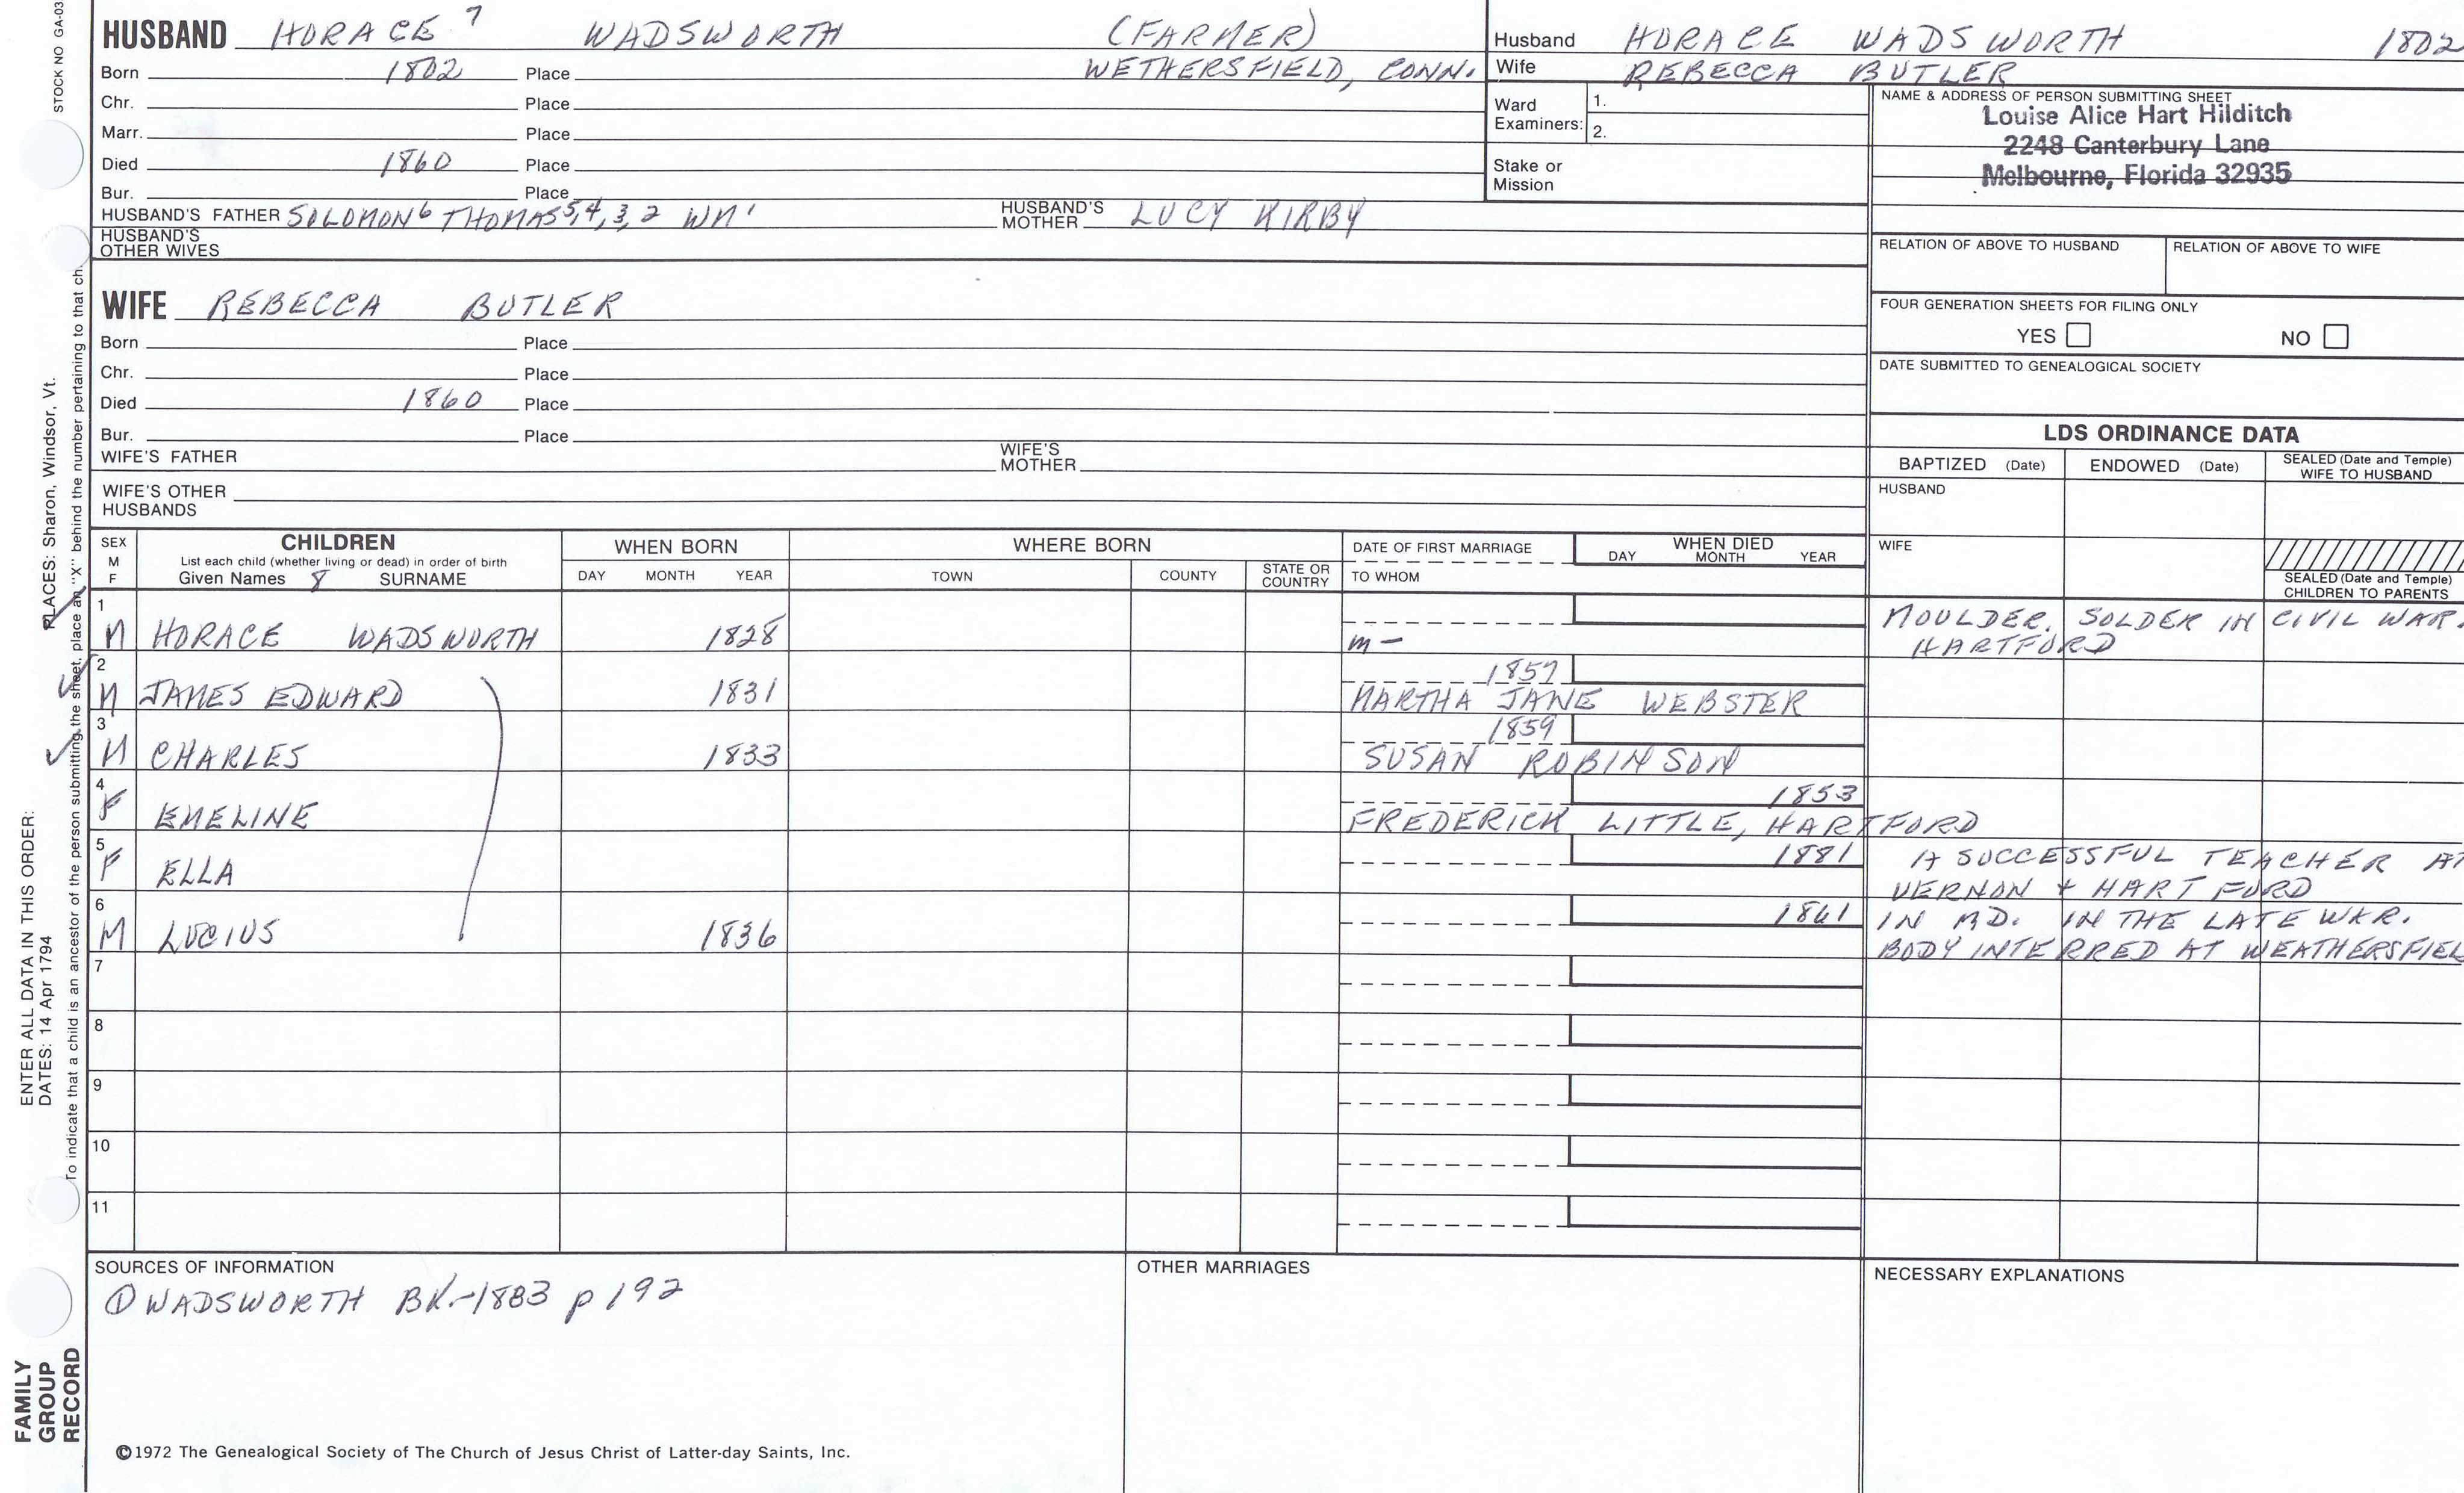 STOCK NO GA-03
HUSBAND HORACE 7 WADSWORTH (FARMER)
Born 1802 Place WETHERSFIELD, CONN.
Chr. Place
Marr. Place
Died 1860 Place
Bur. Place
HUSBAND'S FATHER SOLOMON 6 THOMAS 5,4,3,2 WM 1 HUSBAND'S MOTHER LUCY KIRBY
HUSBAND'S OTHER WIVES
Husband HORACE WADSWORTH 1802
Wife REBECCA BUTLER
Ward Examiners: 1.
2.
Stake or Mission
NAME & ADDRESS OF PERSON SUBMITTING SHEET
Louise Alice Hart Hilditch
2248 Canterbury Lane
Melbourne, Florida 32935
RELATION OF ABOVE TO HUSBAND RELATION OF ABOVE TO WIFE
FOUR GENERATION SHEETS FOR FILING ONLY
YES NO
DATE SUBMITTED TO GENEALOGICAL SOCIETY
WIFE REBECCA BUTLER
Born Place
Chr. Place
Died 1860 Place
Bur. Place
WIFE'S FATHER WIFE'S MOTHER
WIFE'S OTHER HUSBANDS
LDS ORDINANCE DATA
BAPTIZED (Date) ENDOWED (Date) SEALED (Date and Temple) WIFE TO HUSBAND
HUSBAND
WIFE
SEALED (Date and Temple) CHILDREN TO PARENTS
SEX M F CHILDREN WHEN BORN WHERE BORN DATE OF FIRST MARRIAGE WHEN DIED
List each child (whether living or dead) in order of birth
Given Names 8 SURNAME DAY MONTH YEAR TOWN COUNTY STATE OR COUNTRY TO WHOM DAY MONTH YEAR
1 MOULDER. SOLDER IN CIVIL WAR.
M HORACE WADSWORTH 1828 m - HARTFORD
2 1857
M JAMES EDWARD 1831 MARTHA JANE WEBSTER
3 1859
M CHARLES 1833 SUSAN ROBINSON
4 1853
F EMELINE FREDERICK LITTLE, HARTFORD
5 1881 A SUCCESSFUL TEACHER AT
F ELLA VERNON + HARTFORD
6 1861 IN MD. IN THE LATE WAR.
M LUCIUS 1836 BODY INTERRED AT WEATHERSFIEL
7
8
9
10
11
SOURCES OF INFORMATION OTHER MARRIAGES NECESSARY EXPLANATIONS
① WADSWORTH BK.-1883 p 192
©1972 The Genealogical Society of The Church of Jesus Christ of Latter-day Saints, Inc.
FAMILY GROUP RECORD
ENTER ALL DATA IN THIS ORDER:
DATES: 14 Apr 1794 PLACES: Sharon, Windsor, Vt.
To indicate that a child is an ancestor of the person submitting the sheet, place an "X" behind the number pertaining to that ch